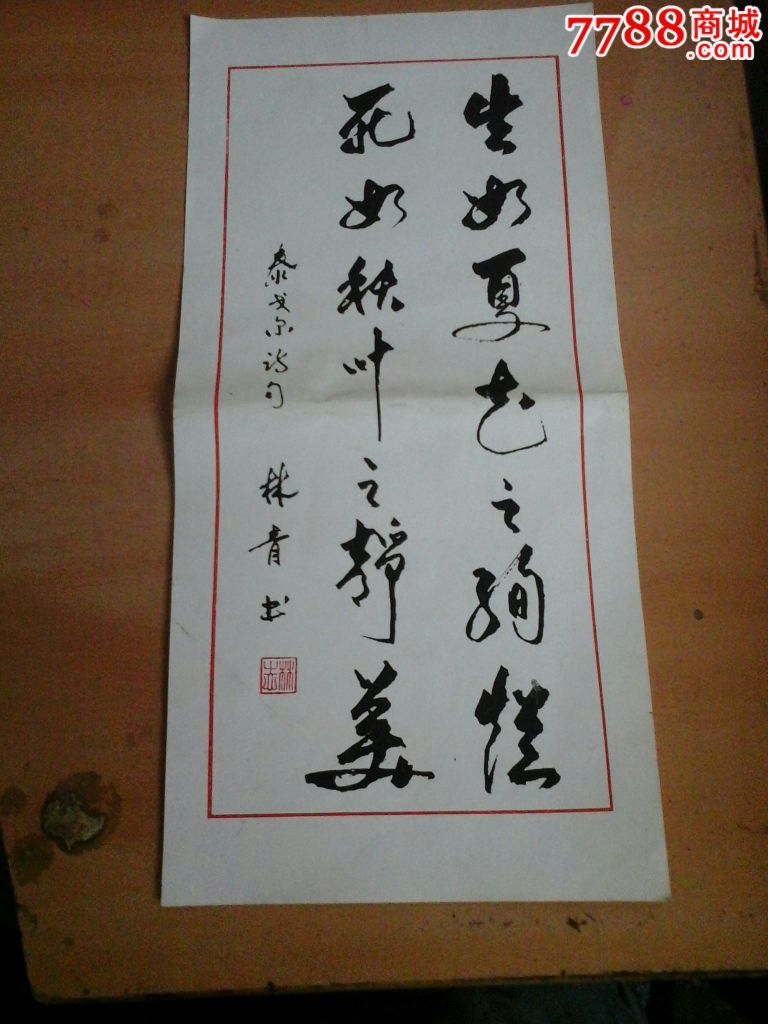 7788商城
.com
生如夏花之绚烂
死如秋叶之静美
泰戈尔诗句 林青书